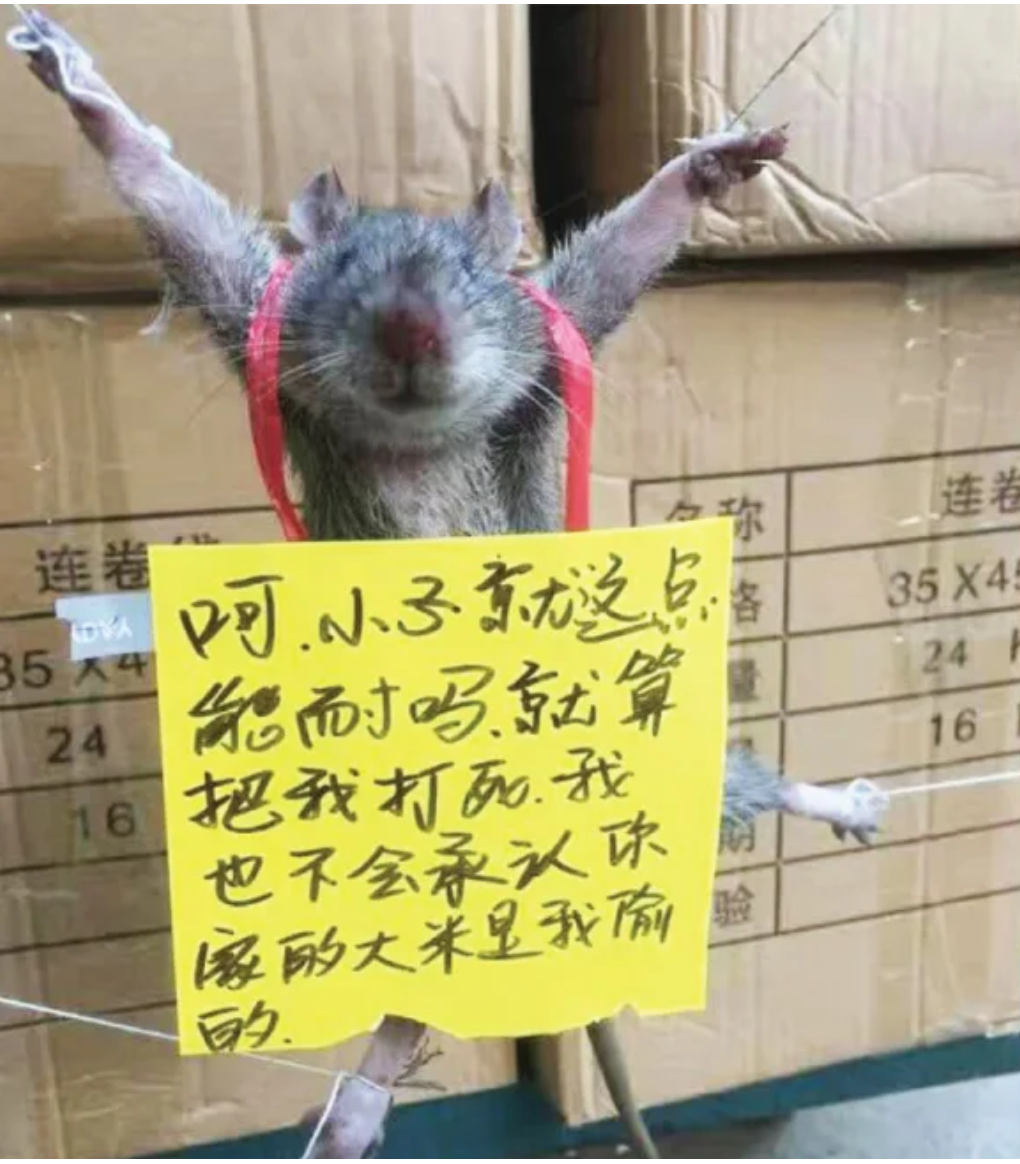 呵.小子就这点
能耐吗.就算
把我打死.我
也不会承认你
家的大米是我偷
的.
连卷袋
35 X 4
24
16
名称
连卷
格
35 X 45
量
24
16
期
验